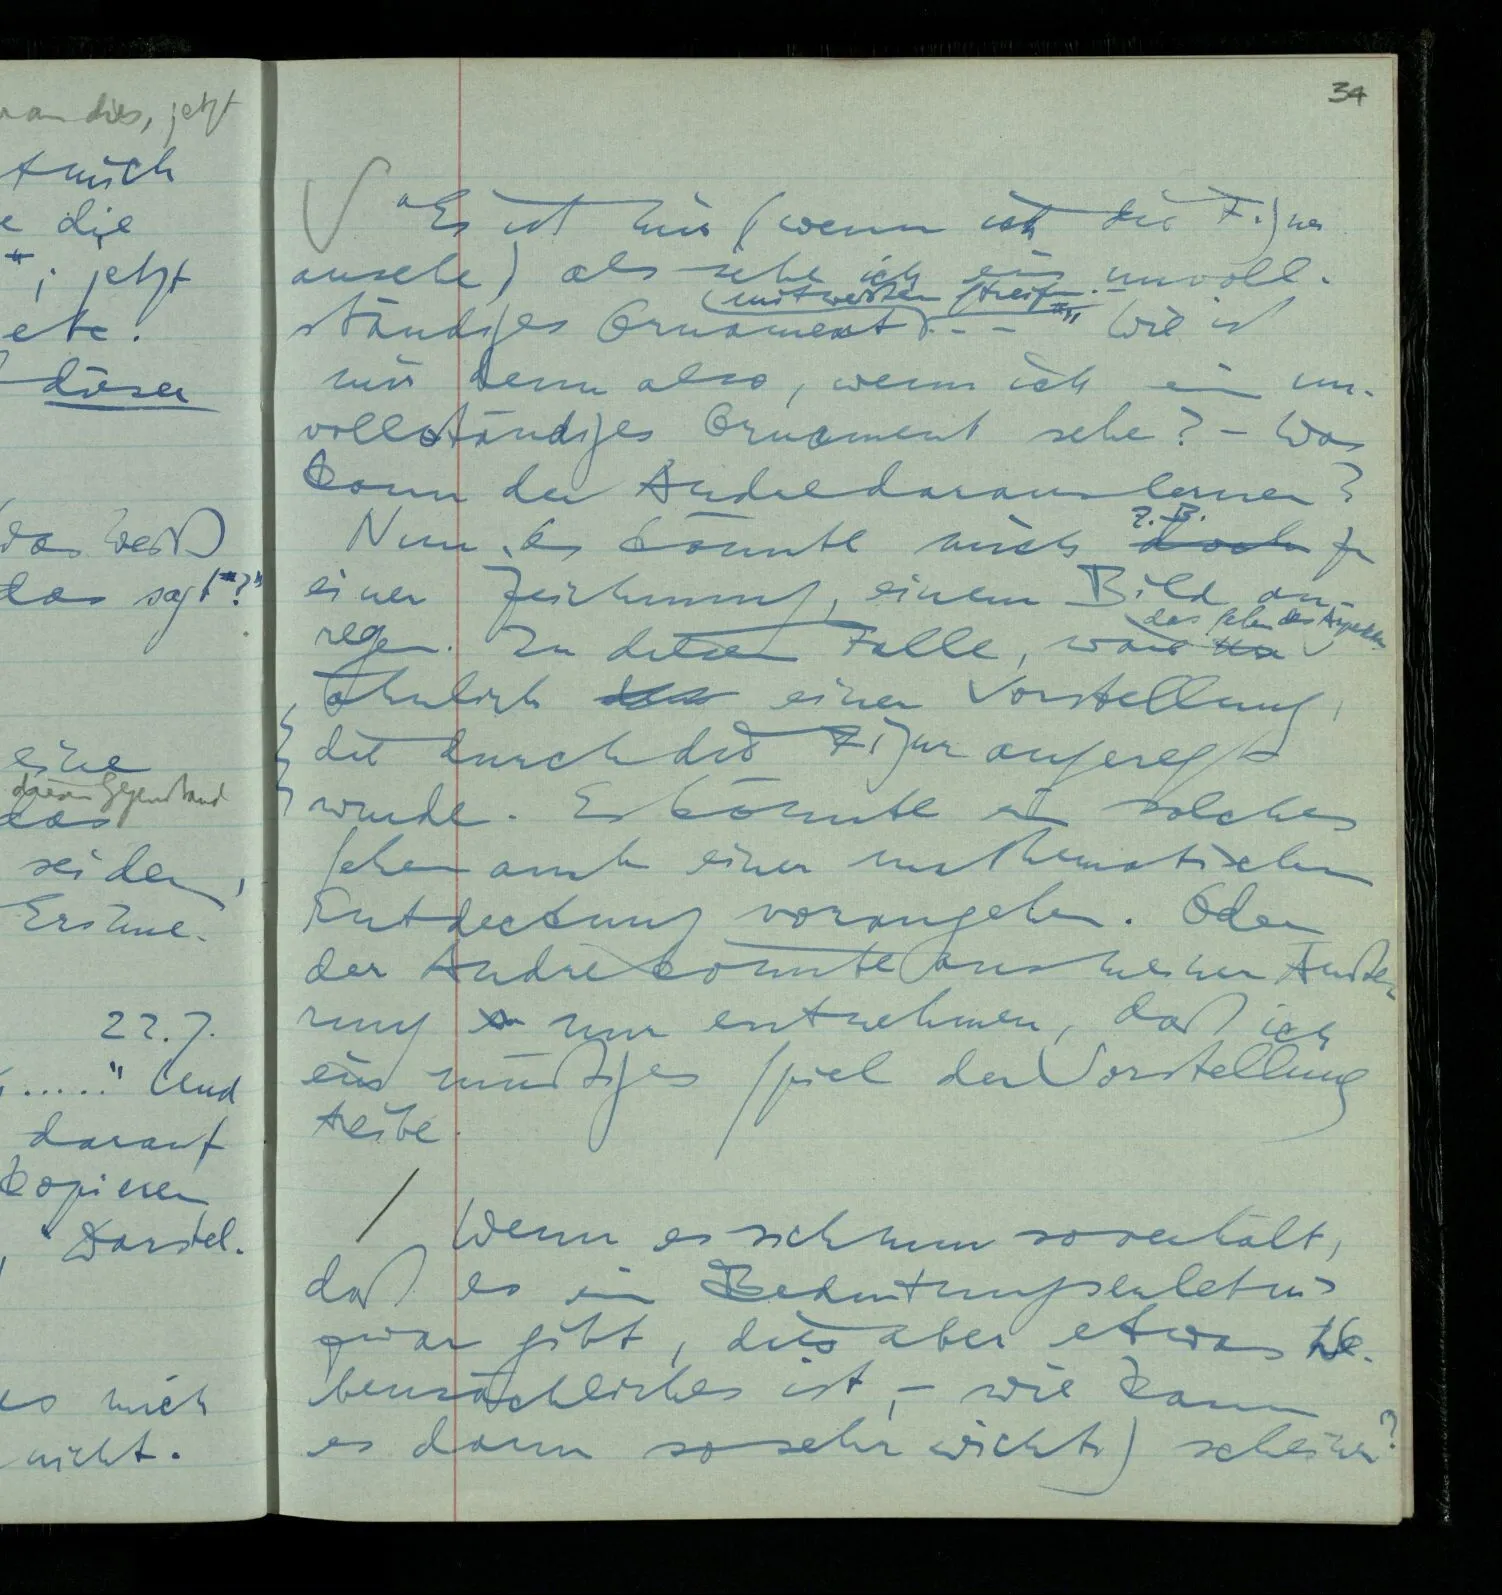 dies, jetzt
mich
die
"; jetzt
etc.
dieser
das weiß
das sagt"?"
eine
diesen Gegenstand
das
sei den,
Erschei-
22.7.
....." Und
darauf
Kopieren
Darstel-
es mich
nicht.
34
"Es ist mir (wenn ich die Figur
ansehe) als sehe ich ein unvoll-
(mit weißen Streifen
ständiges Ornament) . – –" Wie ist
mir denn also, wenn ich ein un-
vollständiges Ornament sehe? – Was
kann der Andre daraus lernen?
z.B.
Nun, es könnte mich doch zu
einer Zeichnung, einem Bild an-
das Sehen des Aspekts
regen. In diesem Falle, wäre
ähnlich einer Vorstellung,
die durch die Figur angeregt
wurde. Es könnte ein solches
Sehen auch einer mathematischen
Entdeckung vorangehen. Oder
der Andre könnte aus meiner Äuße-
rung nur entnehmen, daß ich
ein müßiges Spiel der Vorstellung
treibe.
/ Wenn es sich nun so verhält,
daß es ein Bedeutungserlebnis
zwar gibt, dies aber etwas Ne-
bensächliches ist, – wie kann
es dann so sehr wichtig scheinen?